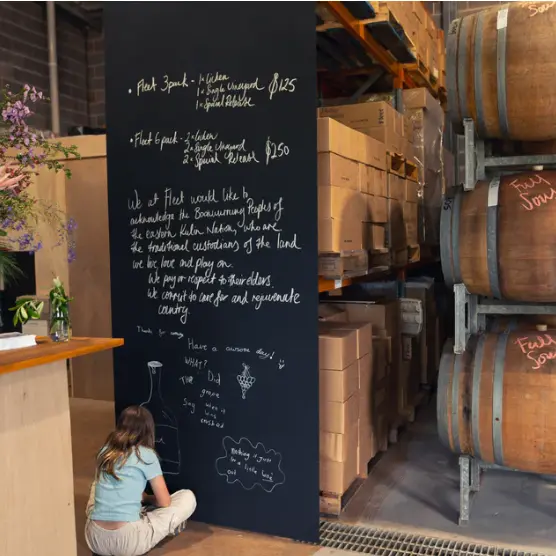 • Fleet 3 pack - 1 x Lichen
1 x Single Vineyard $125
1 x Special Release
• Fleet 6 pack - 2 x Lichen
2 x Single Vineyard
2 x Special Release $250
We at Fleet would like to
acknowledge the Boonwurrung Peoples of
the eastern Kulin Nation, who are
the traditional custodians of the land
we live, love and play on.
We pay our respect to their elders.
We commit to care for and rejuvenate
country.
Thanks for
Have a awsome day!
WHAT?
THE Did
grape
Say when it
was
crushed
Nothing it Just
let a little
out
Full
Sour
Full
Sour
Full